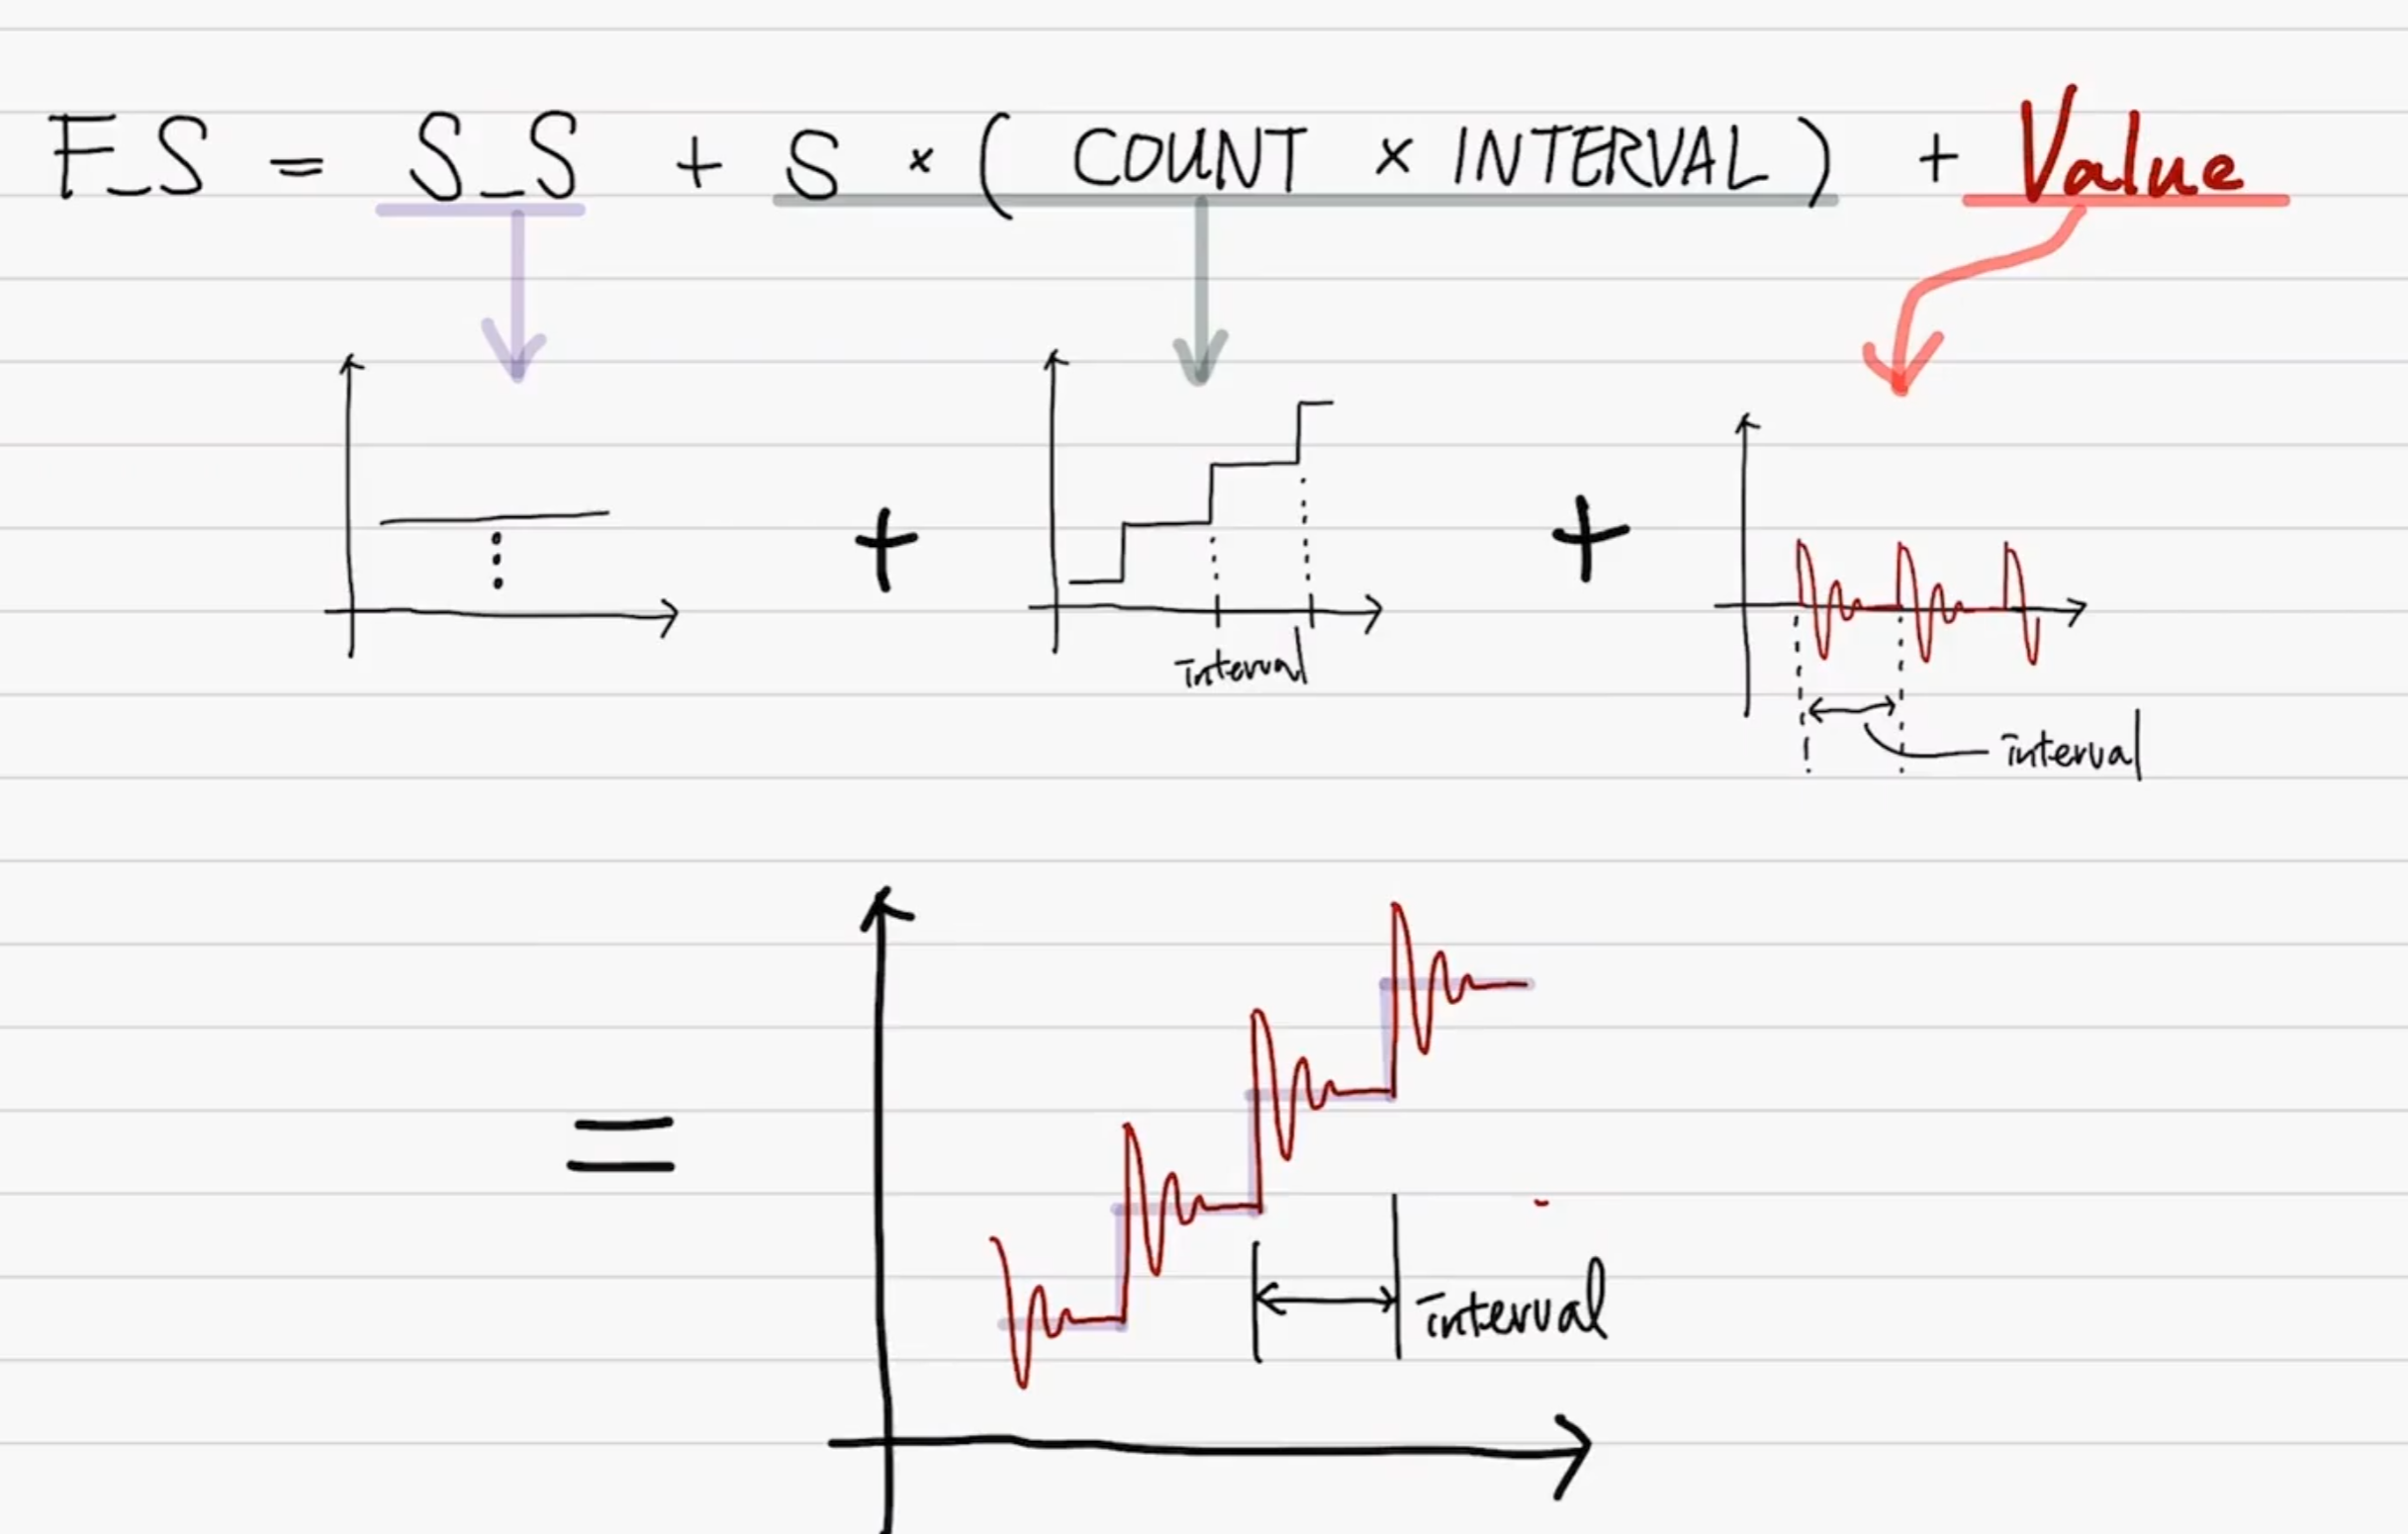 F_S = S_S + S × ( COUNT × INTERVAL ) + Value
+
+
interval
interval
=
interval